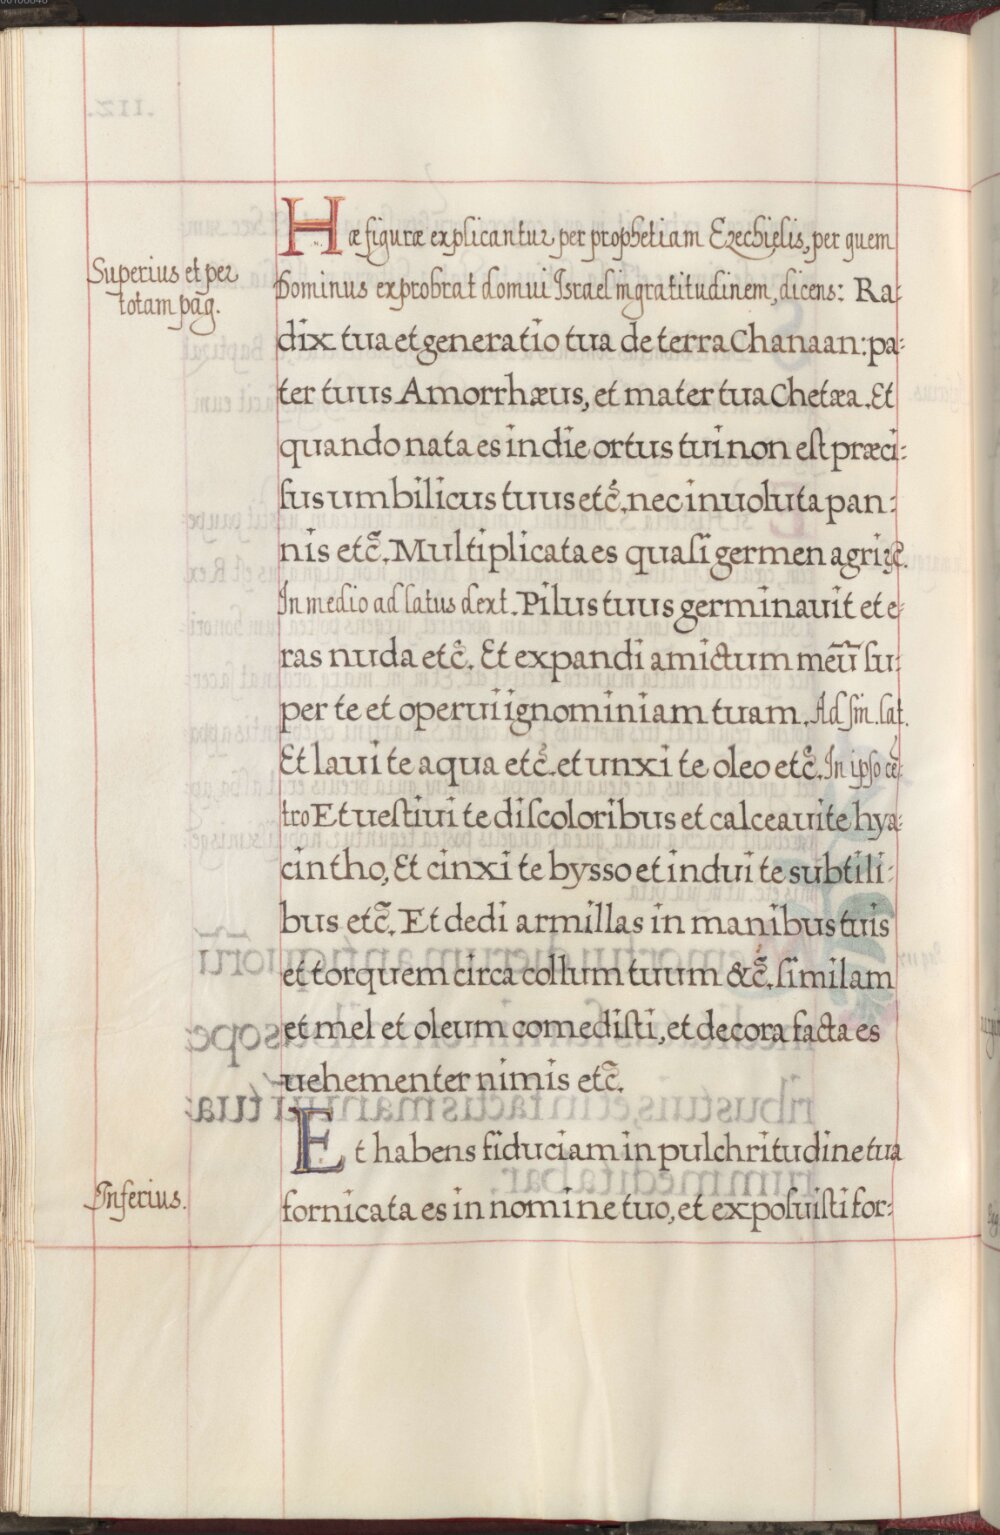 Superius et per
totam pag.
Hæ figuræ explicantur per prophetiam Ezechielis, per quem
Dominus exprobrat domui Israel ingratitudinem, dicens: Ra:
dix tua et generatio tua de terra Chanaan: pa:
ter tuus Amorrhæus, et mater tua Chetæa. Et
quando nata es in die ortus tui non eſt præci:
ſus umbilicus tuus etc̃. nec inuoluta pan:
nis etc̃. Multiplicata es quaſi germen agri &c̃.
In medio ad latus dext. Pilus tuus germinauit et e:
ras nuda etc̃. Et expandi amictum meū ſu:
per te et operui ignominiam tuam. Ad ſin. lat.
Et laui te aqua etc̃. et unxi te oleo etc̃. In ipſo cē:
tro Et ueſtiui te diſcoloribus et calceaui te hya:
cintho, Et cinxi te bysso et indui te subtili:
bus etc̃. Et dedi armillas in manibus tuis
et torquem circa collum tuum &c̃. ſimilam
et mel et oleum comediſti, et decora facta es
uehementer nimis etc̃.
Et habens fiduciam in pulchritudine tua
Inferius.
fornicata es in nomine tuo, et expoſuiſti for: